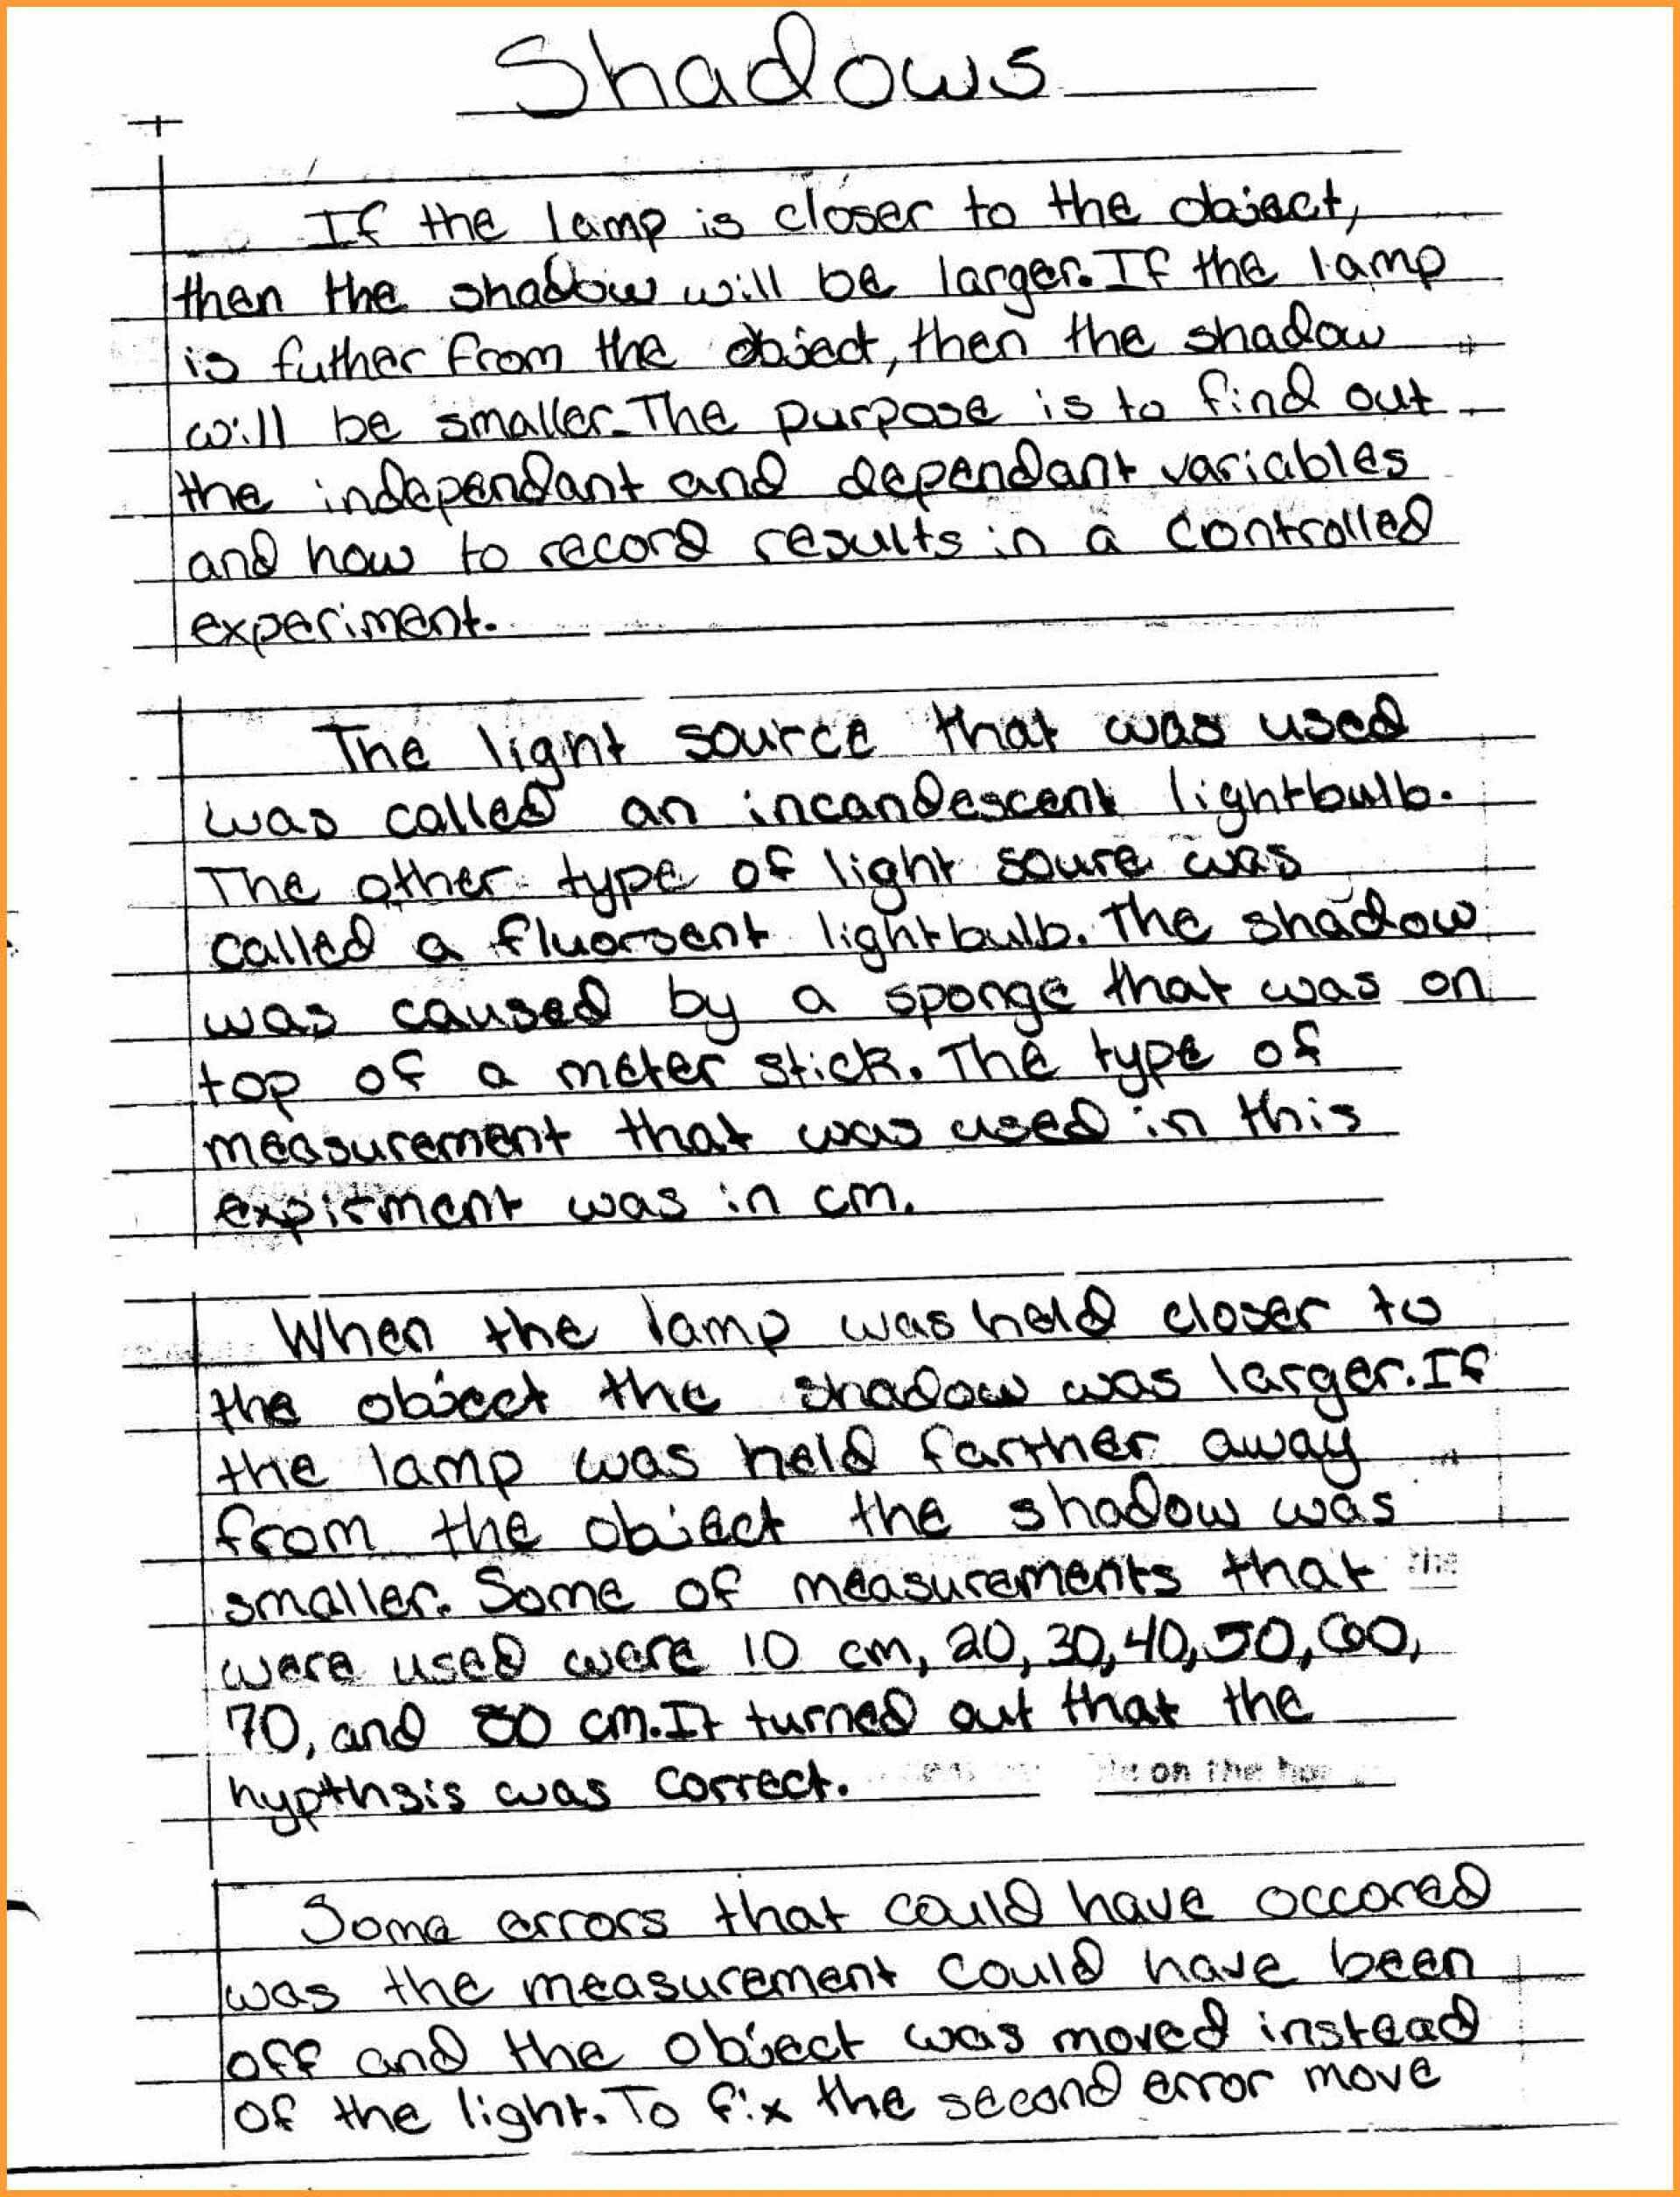 Shadows
If the lamp is closer to the object,
then the shadow will be larger. If the lamp
is futher from the object, then the shadow
will be smaller. The purpose is to find out
the independant and dependant variables
and how to record results in a controlled
experiment.
The light source that was used
was called an incandescent lightbulb.
The other type of light soure was
called a fluorsent lightbulb. The shadow
was caused by a sponge that was on
top of a meter stick. The type of
measurement that was used in this
expirment was in cm.
When the lamp was held closer to
the object the shadow was larger. If
the lamp was held farther away
from the object the shadow was
smaller. Some of measurements that
the
were used were 10 cm, 20, 30, 40, 50, 60,
70, and 80 cm. It turned out that the
hypthsis was correct.
on the
Some errors that could have occored
was the measurement could have been
off and the object was moved instead
of the light. To fix the second error move